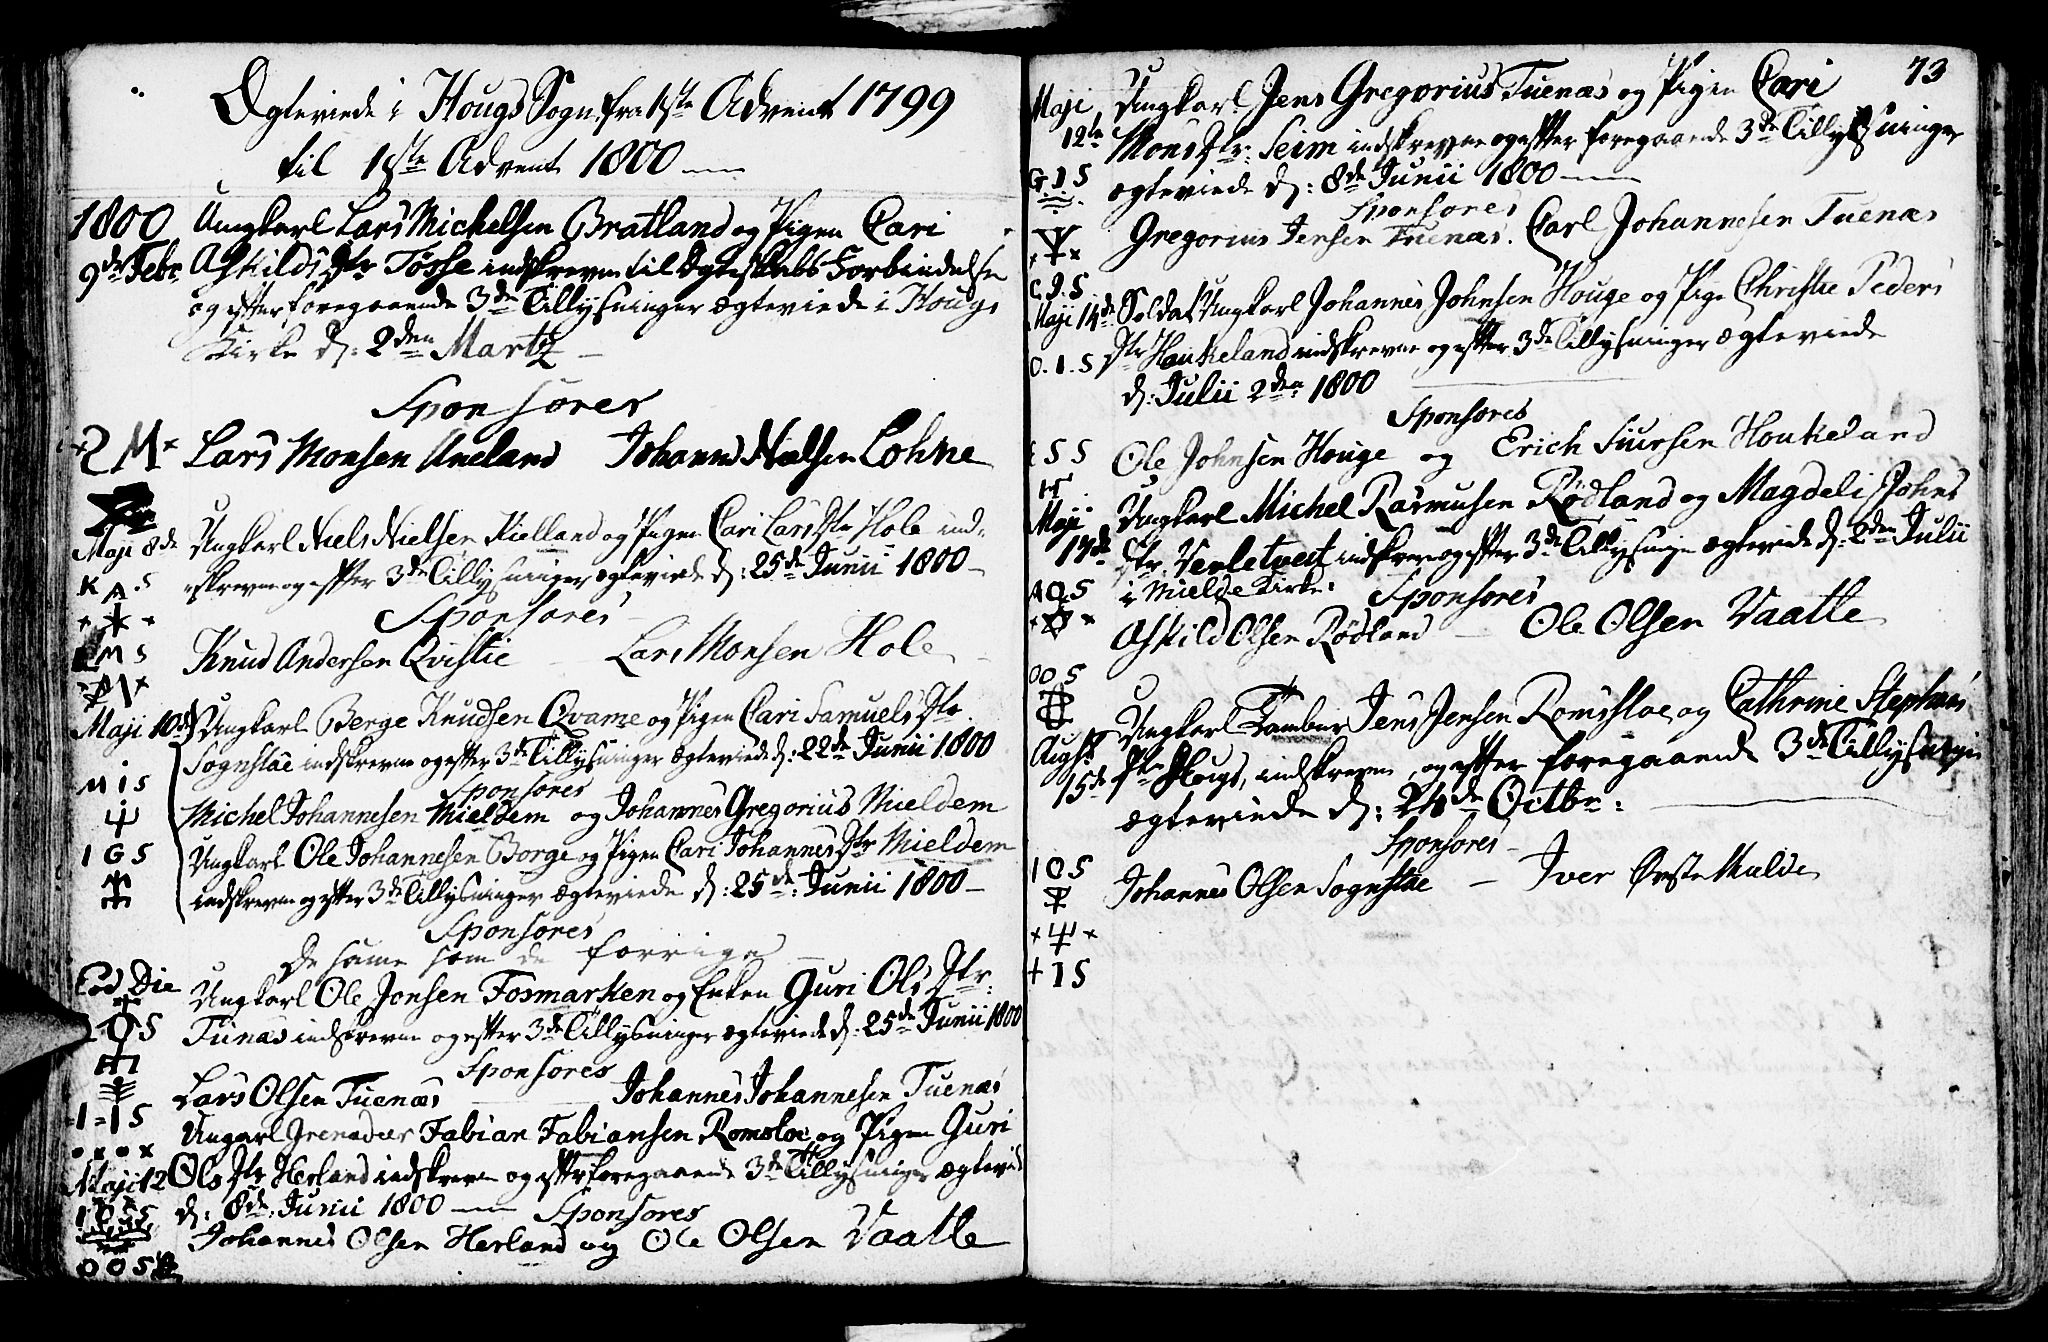 Ægteviede i Hougs Sogn fra 1ste Advent 1799
til 1ste Advent 1800
1800 Ungkarl Lars Michelsen Bratland og Pigen Cari
9de Febr. Askilds Dtr Tösse indskrevne til Ægteskabs Forbindelse
og efter foregaaende 3de Tillysninger ægteviede i Hougs
Kirke d: 2den Martz
Sponsores
Lars Monsen Uneland Johannes Nielsen Lohne
Maji 8de Ungkarl Niels Nielsen Kielland og Pigen Cari Lars Dtr Hole ind-
K A S skrevne og efter 3de Tillysninger ægteviede d: 25de Junii 1800
Sponsores
Knud Andersen Qvistie Lars Monsen Hole
Maji 10de Ungkarl Berge Knudsen Qvame og Pigen Cari Samuels Dtr
Sognstae indskrevne og efter 3de Tillysninger ægteviede d: 22de Junii 1800
M I S Sponsores
Michel Johannesen Mieldem og Johannes Gregorius Mieldem
I G S Ungkarl Ole Johannesen Borge og Pigen Cari Johannes Dtr Mieldem
indskrevne og efter 3de Tillysninger ægteviede d: 25de Junii 1800
Sponsores
De same som de forrige
Eod Die Ungkarl Ole Jonsen Fosmarken og Enken Guri Ols Dtr:
L O S Tunæs indskrevne og efter 3de Tillysninger ægteviede d: 25de Junii 1800
Sponsores
Lars Olsen Tuenæs Johannes Johannesen Tuenæs
I I S Ungarl Grenadeer Fabian Fabiansen Romsloe og Pigen Guri
Maji 12 Ols Dtr Herland indskrevne og efter foregaaende 3de Tillysninger ægtevied
I O S d: 8de Junii 1800 Sponsores
Johannes Olsen Herland og Ole Olsen Vaatle
O O S
73
Maji Ungkarl Jens Gregorius Tuenæs og Pigen Cari
12te Mons Dtr: Seim indskrevne og efter foregaaende 3de Tillysninger
G I S ægteviede d: 8de Junii 1800
Sponsores
Gregorius Jensen Tuenæs. Carl Johannesen Tuenæs
C I S
Maji 14de Soldat Ungkarl Johannes Johnsen Houge og Pige Christie Peders
O I S Dtr Houkeland indskrevne og efter 3de Tillysninger ægteviede
d: Julii 2den 1800
Sponsores
E S S Ole Johnsen Houge og Erich Siursen Houkeland
Maji Ungkarl Michel Rasmusen Rödland og Magdeli Johns
14de Dtr. Verletvest indskrevne og efter 3de Tillysninger ægteviede d: 2den Julii
A O S i Mielde Kirke: Sponsores
Askild Olsen Rödland Ole Olsen Vaatle
O O S
Ungkarl Tambur Jens Jensen Romssloe og Cathrine Stephans
Augst
15de Dtr Hougs, indskrevne, og efter foregaaende 3de Tillysninger
ægteviede d: 24de Octbr:
Sponsores
I O S Johannes Olsen Sognstae Iver Mulde
I S